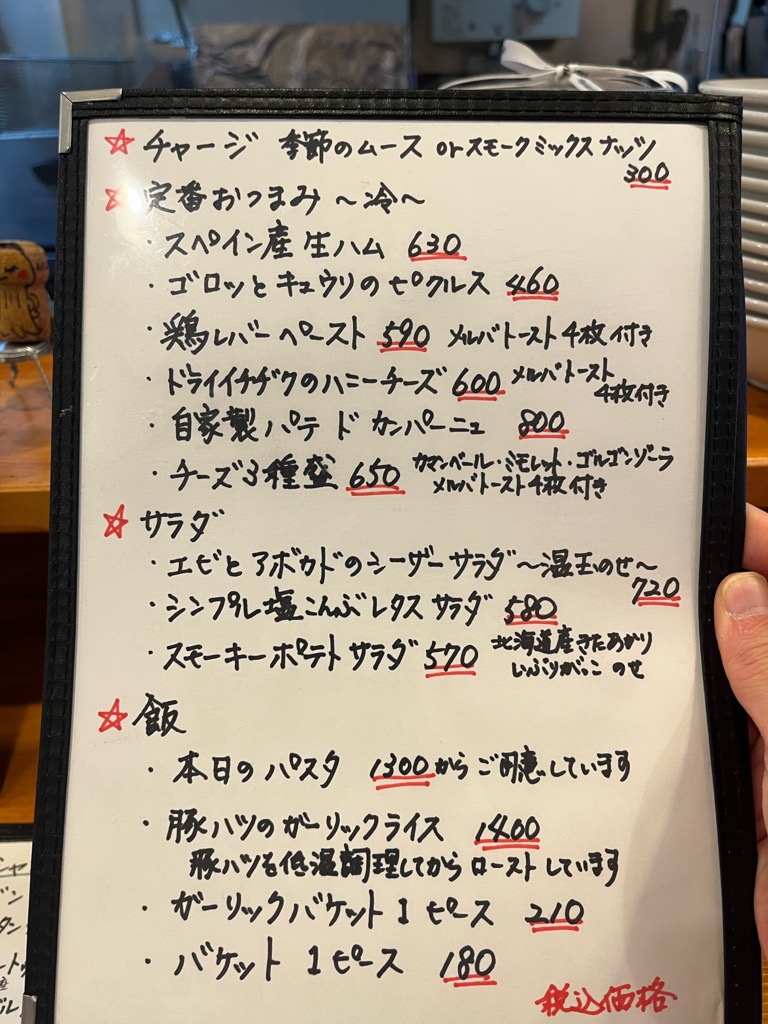 ☆ チャージ 季節のムース orスモークミックスナッツ
300
☆ 定番おつまみ ～冷～
・スペイン産 生ハム 630
・ゴロッとキュウリのピクルス 460
・鶏レバーペースト 590 メルバトースト4枚付き
・ドライイチヂクのハニーチーズ 600 メルバトースト
4枚付き
・自家製パテ ド カンパーニュ 800
・チーズ3種盛 650 カマンベール・ミモレット・ゴルゴンゾーラ
メルバトースト4枚付き
☆ サラダ
・エビとアボカドのシーザーサラダ～温玉のせ～
720
・シンプル塩こんぶレタスサラダ 580
・スモーキーポテトサラダ 570 北海道産きたあかり
いぶりがっこ のせ
☆ 飯
・本日のパスタ 1300からご用意しています
・豚ハツのガーリックライス 1400
豚ハツを低温調理してからローストしています
・ガーリックバケット 1ピース 210
・バケット 1ピース 180
税込価格